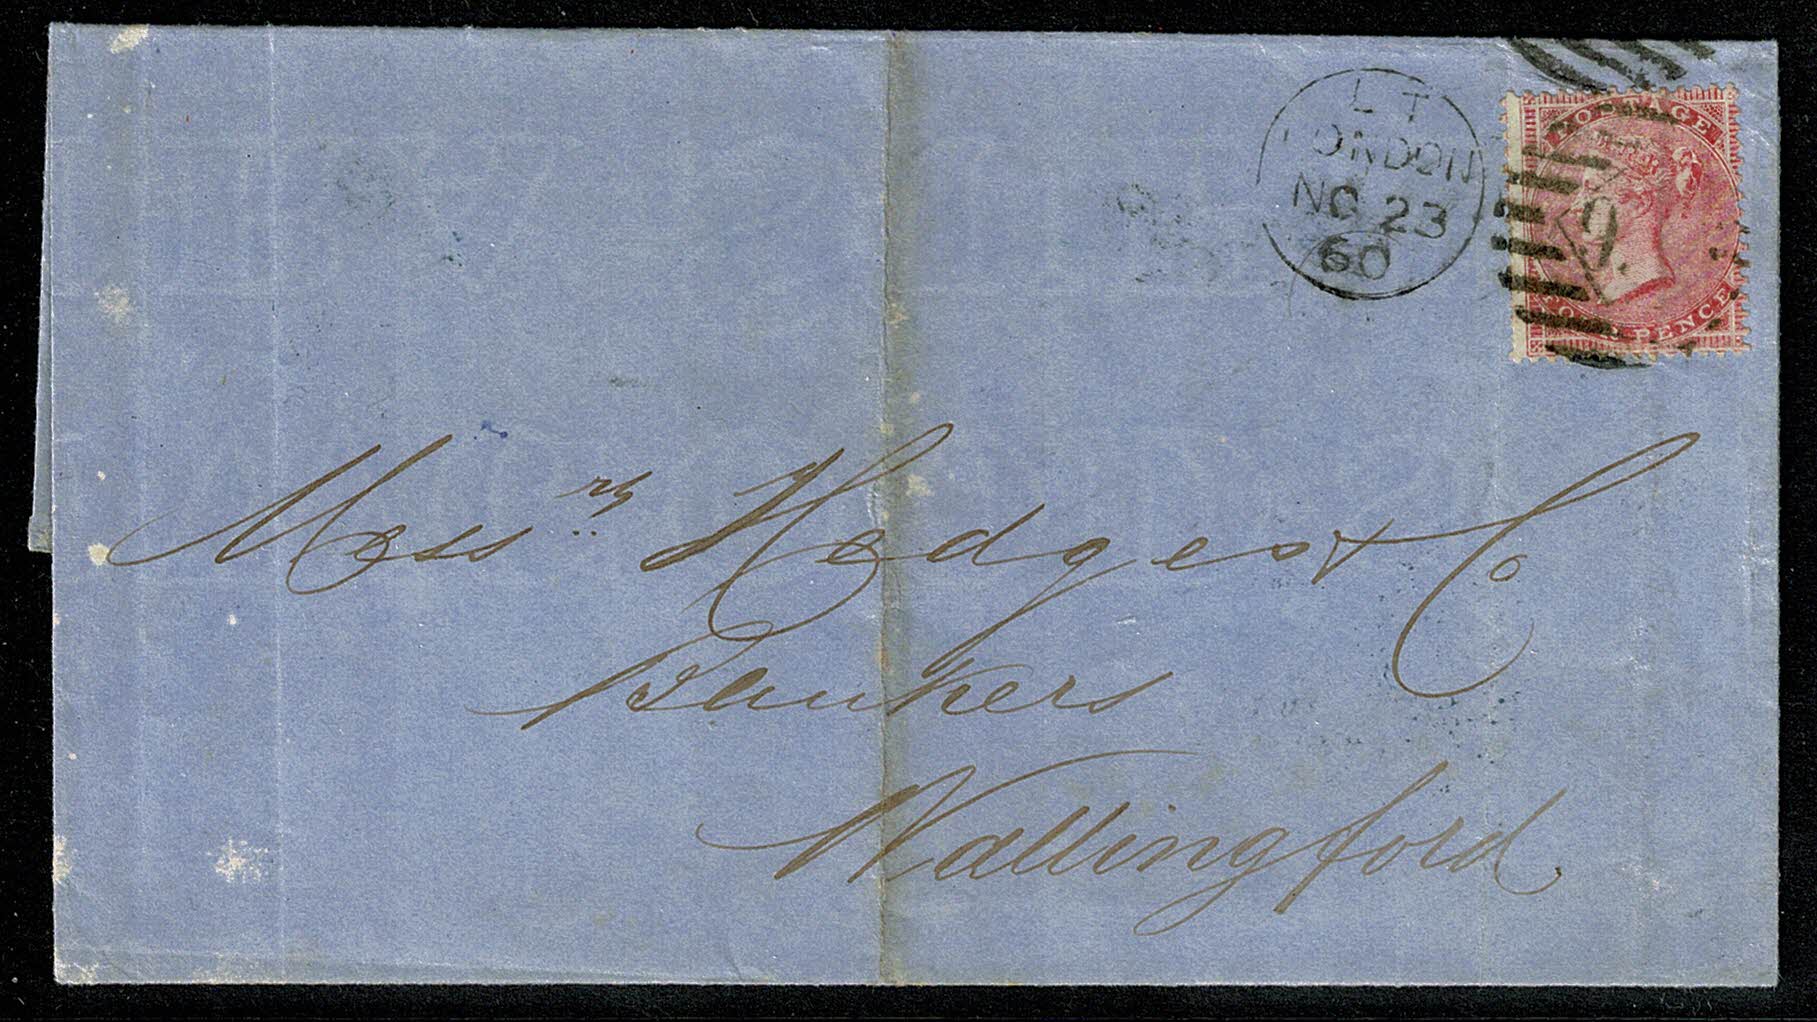 LT
LONDON
NO 23
60
POSTAGE
9.
FOUR PENCE
Mess.rs Hedges & Co
Bankers
Wallingford